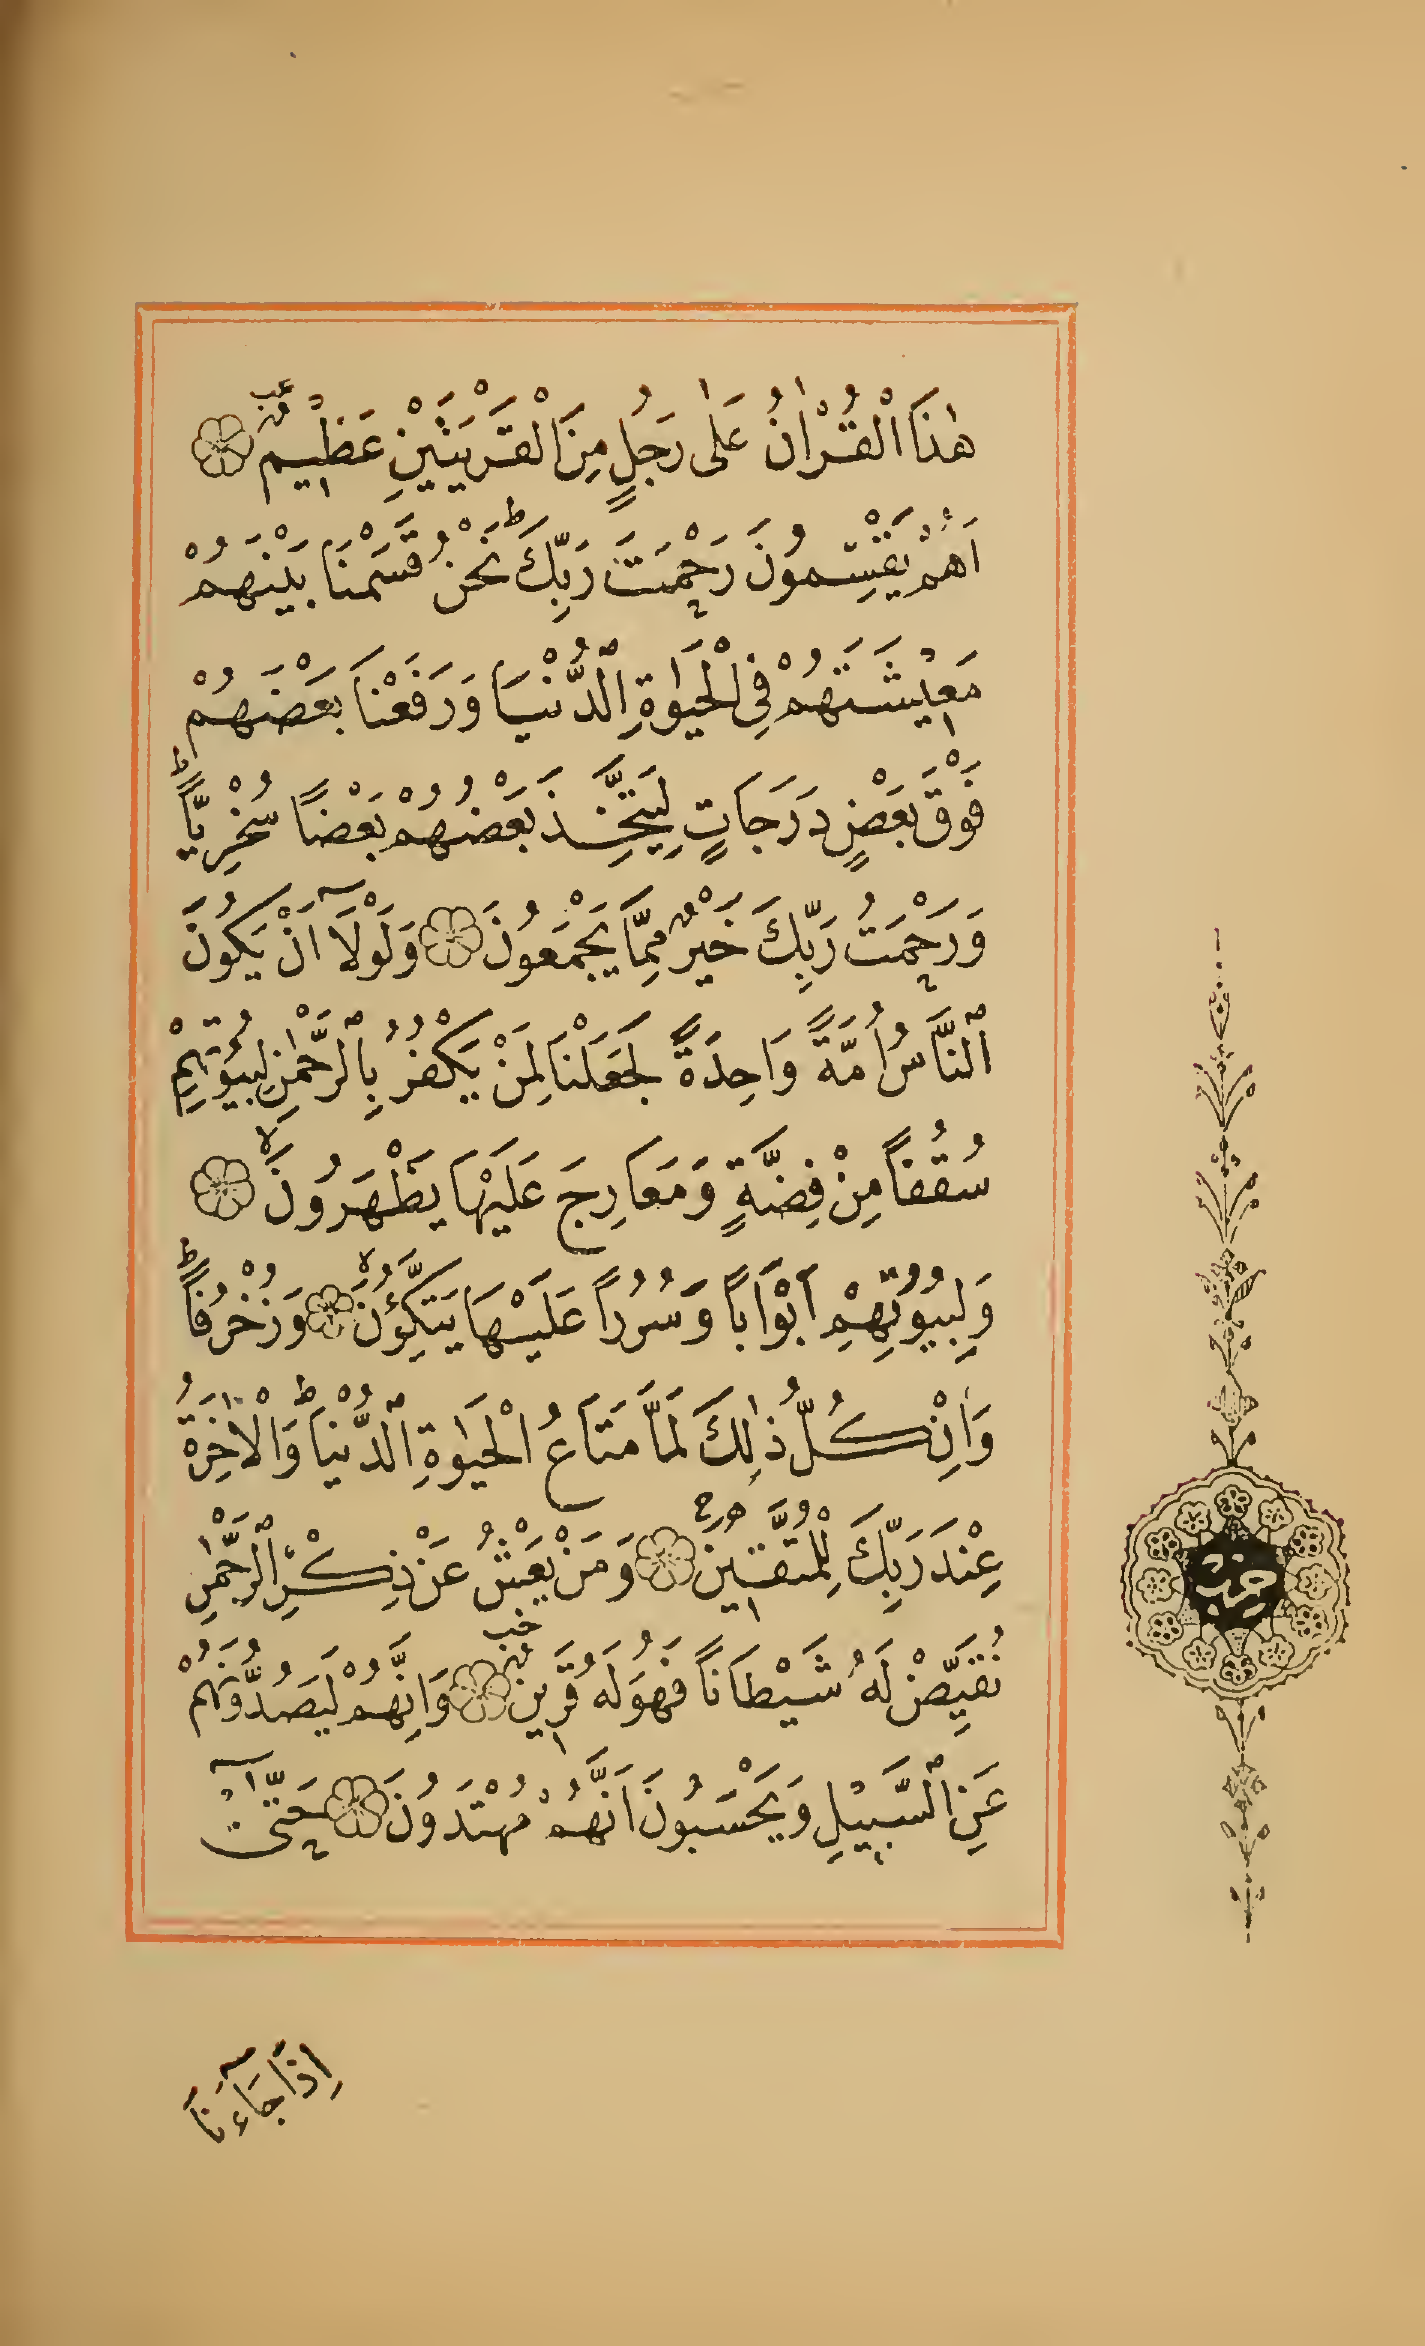 هٰذَا الْقُرْاٰنُ عَلٰى رَجُلٍ مِنَ الْقَرْيَتَيْنِ عَظ۪يمٍ
اَهُمْ يَقْسِمُونَ رَحْمَتَ رَبِّكَ نَحْنُ قَسَمْنَا بَيْنَهُمْ
مَع۪يشَتَهُمْ فِي الْحَيٰوةِ الدُّنْيَا وَرَفَعْنَا بَعْضَهُمْ
فَوْقَ بَعْضٍ دَرَجَاتٍ لِيَتَّخِذَ بَعْضُهُمْ بَعْضًا سُخْرِيًّا
وَرَحْمَتُ رَبِّكَ خَيْرٌ مِمَّا يَجْمَعُونَ وَلَوْلَٓا اَنْ يَكُونَ
النَّاسُ اُمَّةً وَاحِدَةً لَجَعَلْنَا لِمَنْ يَكْفُرُ بِالرَّحْمٰنِ لِبُيُوتِهِمْ
سُقُفًا مِنْ فِضَّةٍ وَمَعَارِجَ عَلَيْهَا يَظْهَرُونَ
وَلِبُيُوتِهِمْ اَبْوَابًا وَسُرُرًا عَلَيْهَا يَتَّكِؤُ۫نَ وَزُخْرُفًا
وَاِنْ كُلُّ ذٰلِكَ لَمَّا مَتَاعُ الْحَيٰوةِ الدُّنْيَا وَالْاٰخِرَةُ
عِنْدَ رَبِّكَ لِلْمُتَّق۪ينَ وَمَنْ يَعْشُ عَنْ ذِكْرِ الرَّحْمٰنِ
نُقَيِّضْ لَهُ شَيْطَانًا فَهُوَ لَهُ قَر۪ينٌ وَاِنَّهُمْ لَيَصُدُّونَهُمْ
عَنِ السَّب۪يلِ وَيَحْسَبُونَ اَنَّهُمْ مُهْتَدُونَ حَتّٰٓى
اِذَا جَٓاءَنَا
حزب